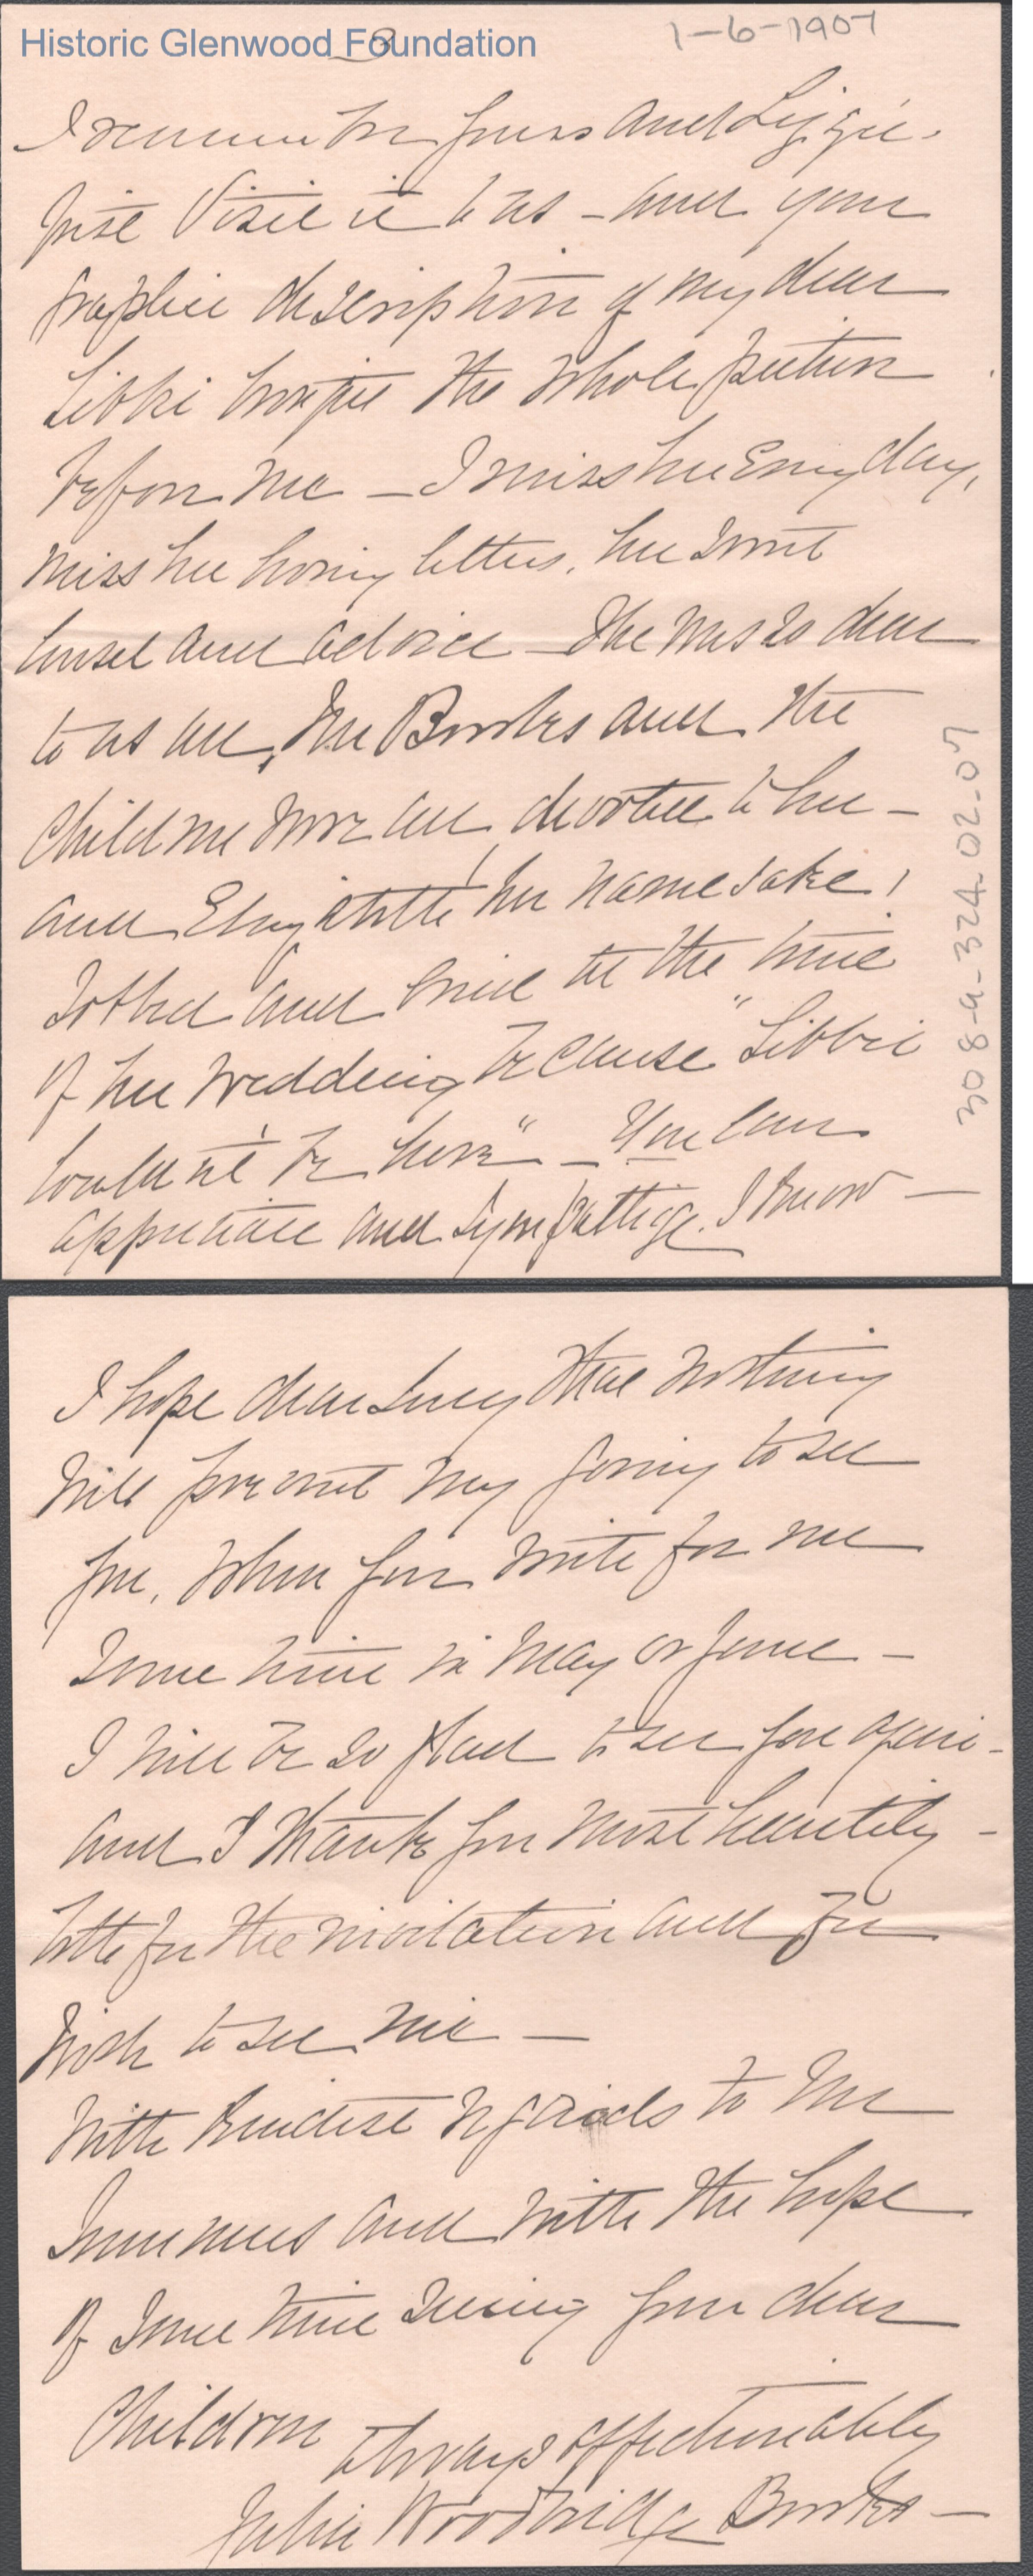 Historic Glenwood Foundation
3
1-6-1907
I remember yours and Lizzie's
first visit to us - and your
graphic description of my dear
Libbie brings the whole picture
before me - I miss her every day,
miss her loving letters, her sweet
counsel and advice - She was so dear
to us all, Mr Brookes and the
children were all devoted to her -
and Elizabeth her namesake!
sobbed and cried at the time
of her wedding because "Libbie
couldn't be here" - You can
appreciate and sympathize I know -
308-a-324-02-07
I hope dear Lucy that nothing
will prevent my going to see
you, when you write for me
some time in May or June -
I will be so glad to see you again -
and I thank you most heartily -
both for the invitation and for
wish to see me -
With kindest regards to Mr
and with the hope
of some time seeing your dear
children
Always affectionately
Julia Woodbridge Brookes -